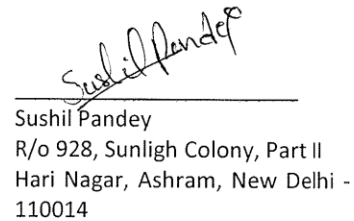 Sushil Pandey
Sushil Pandey
R/o 928, Sunligh Colony, Part II
Hari Nagar, Ashram, New Delhi -
110014